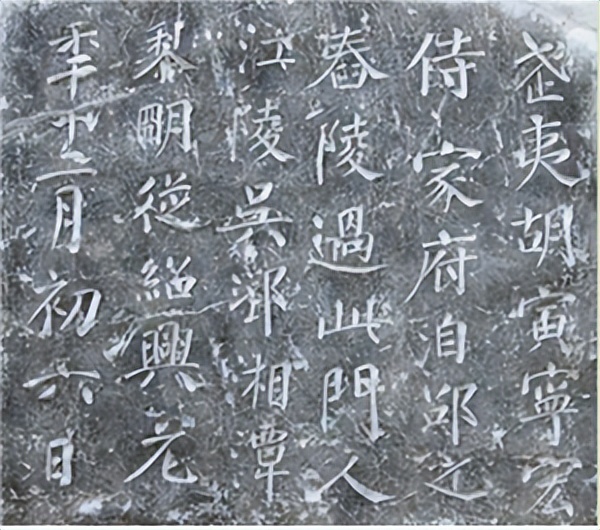 武夷胡寅寧宏
侍家府洎邵之
舂陵過此門人
江陵吳郛湘潭
黎明從紹興元
年十二月初六日